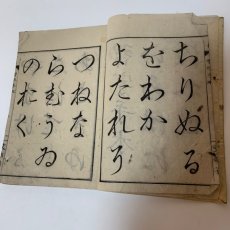 ちりぬる
をわか
よたれそ
つねな
らむうゐ
のおく